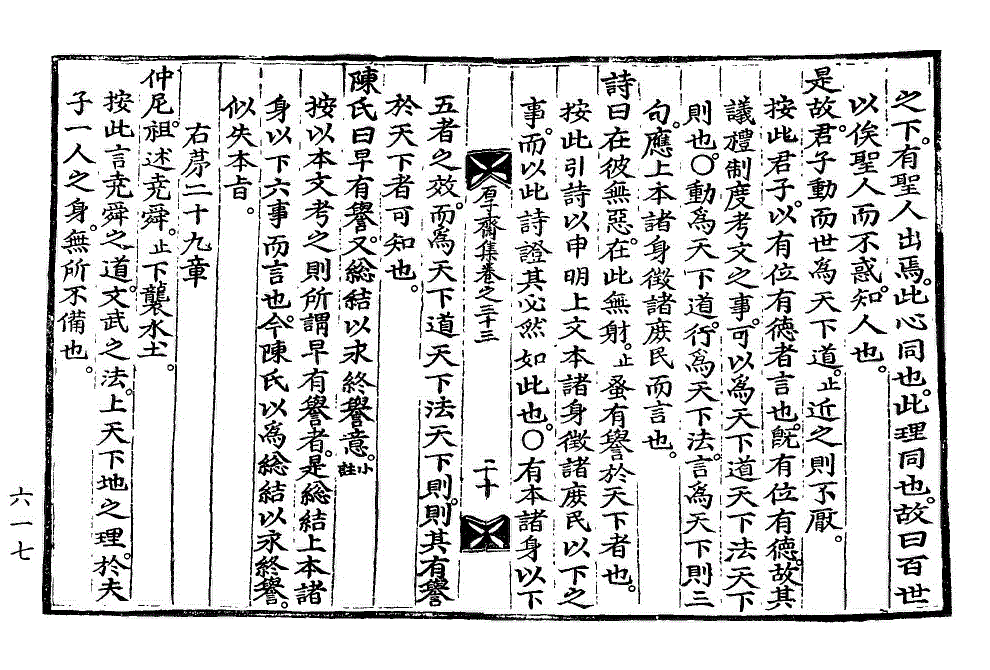 之下。有聖人出焉。此心同也。此理同也。故曰百世
以俟聖人而不惑。知人也。
是故君子動而世爲天下道。止近之則不厭。
按此君子。以有位有德者言也。旣有位有德。故其
議禮制度考文之事。可以爲天下道天下法天下
則也。○動爲天下道。行爲天下法。言爲天下則三
句。應上本諸身徵諸庶民而言也。
詩曰在彼無惡。在此無射。止蚤有譽於天下者也。
按此引詩以申明上文本諸身徵諸庶民以下之
事。而以此詩證其必然如此也。○有本諸身以下
厚齋集卷之三十三
二十
五者之效。而爲天下道天下法天下則。則其有譽
於天下者可知也。
陳氏曰早有譽。又総結以求終譽意。小註
按以本文考之則所謂早有譽者。是総結上本諸
身以下六事而言也。今陳氏以爲総結以永終譽。
似失本旨。
右苐二十九章
仲尼。祖述尭舜。止下襲水土。
按此言尭舜之道。文武之法。上天下地之理。於夫
子一人之身。無所不備也。
六一七